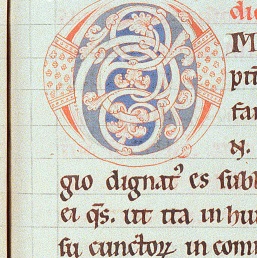 O
di
M
pti
fa
N.
gio dignat' es subl
ei q̄s. ut ita in hu
su cunctoꝝ in com